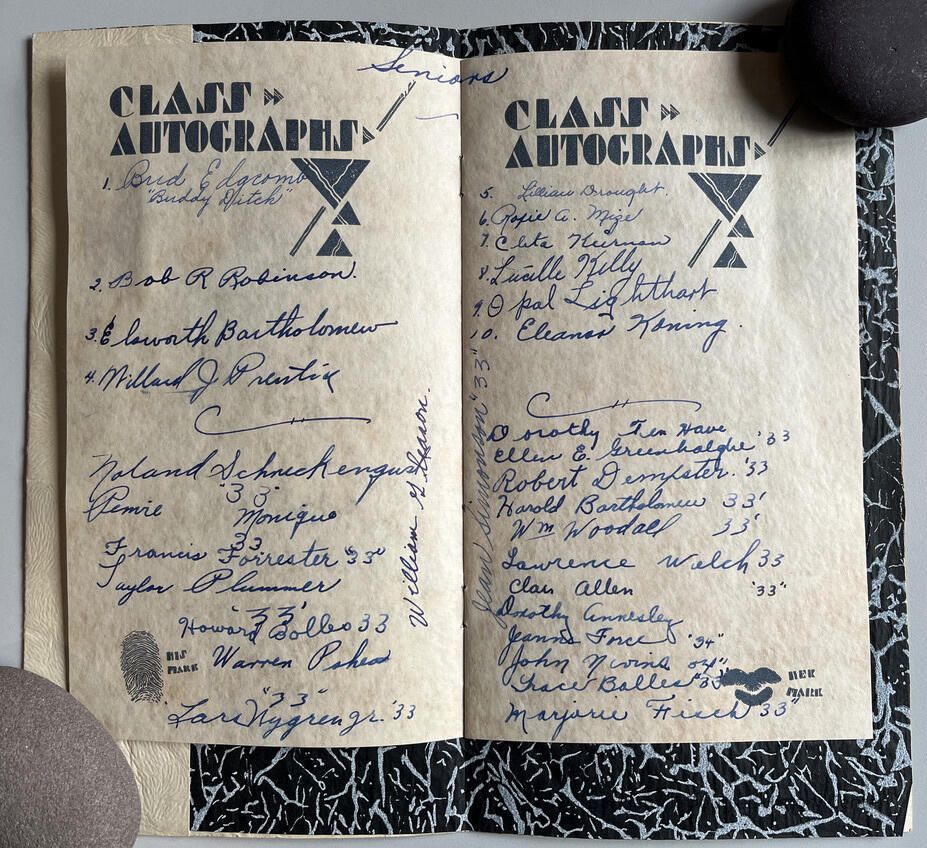 Seniors
CLASS
AUTOGRAPHS
1. Bud Edgcomb
"Buddy Ditch"
2. Bob R Robinson.
3. Elsworth Bartholomew
4. Willard J Prentice
Noland Schneckengust
"33"
Pemie
Monique
33
Francis Forrester "33"
Taylor Plummer
'33'
Howard Bolles 33
HIS
MARK
Warren
"33"
Lars Nygren jr. '33
William Gleason.
CLASS
AUTOGRAPHS
5. Lillian Drought.
6. Roxie A. Mize
7. Cleta Kiernan
8. Lucille Kelly
9. Opal Lighthart
10. Eleanor Koning.
Jean Simonson "33"
Dorothy Ten Have
Ellen E. Greenhalghe '33
Robert Dempster. '33
Harold Bartholomew 33'
Wm Woodall 33'
Lawrence Welch 33
Clair Allen '33"
Dorothy Annesley
Jeanne Force "34"
John Nivins 34"
Grace Balles "33
HER
MARK
Marjorie Fisch '33"